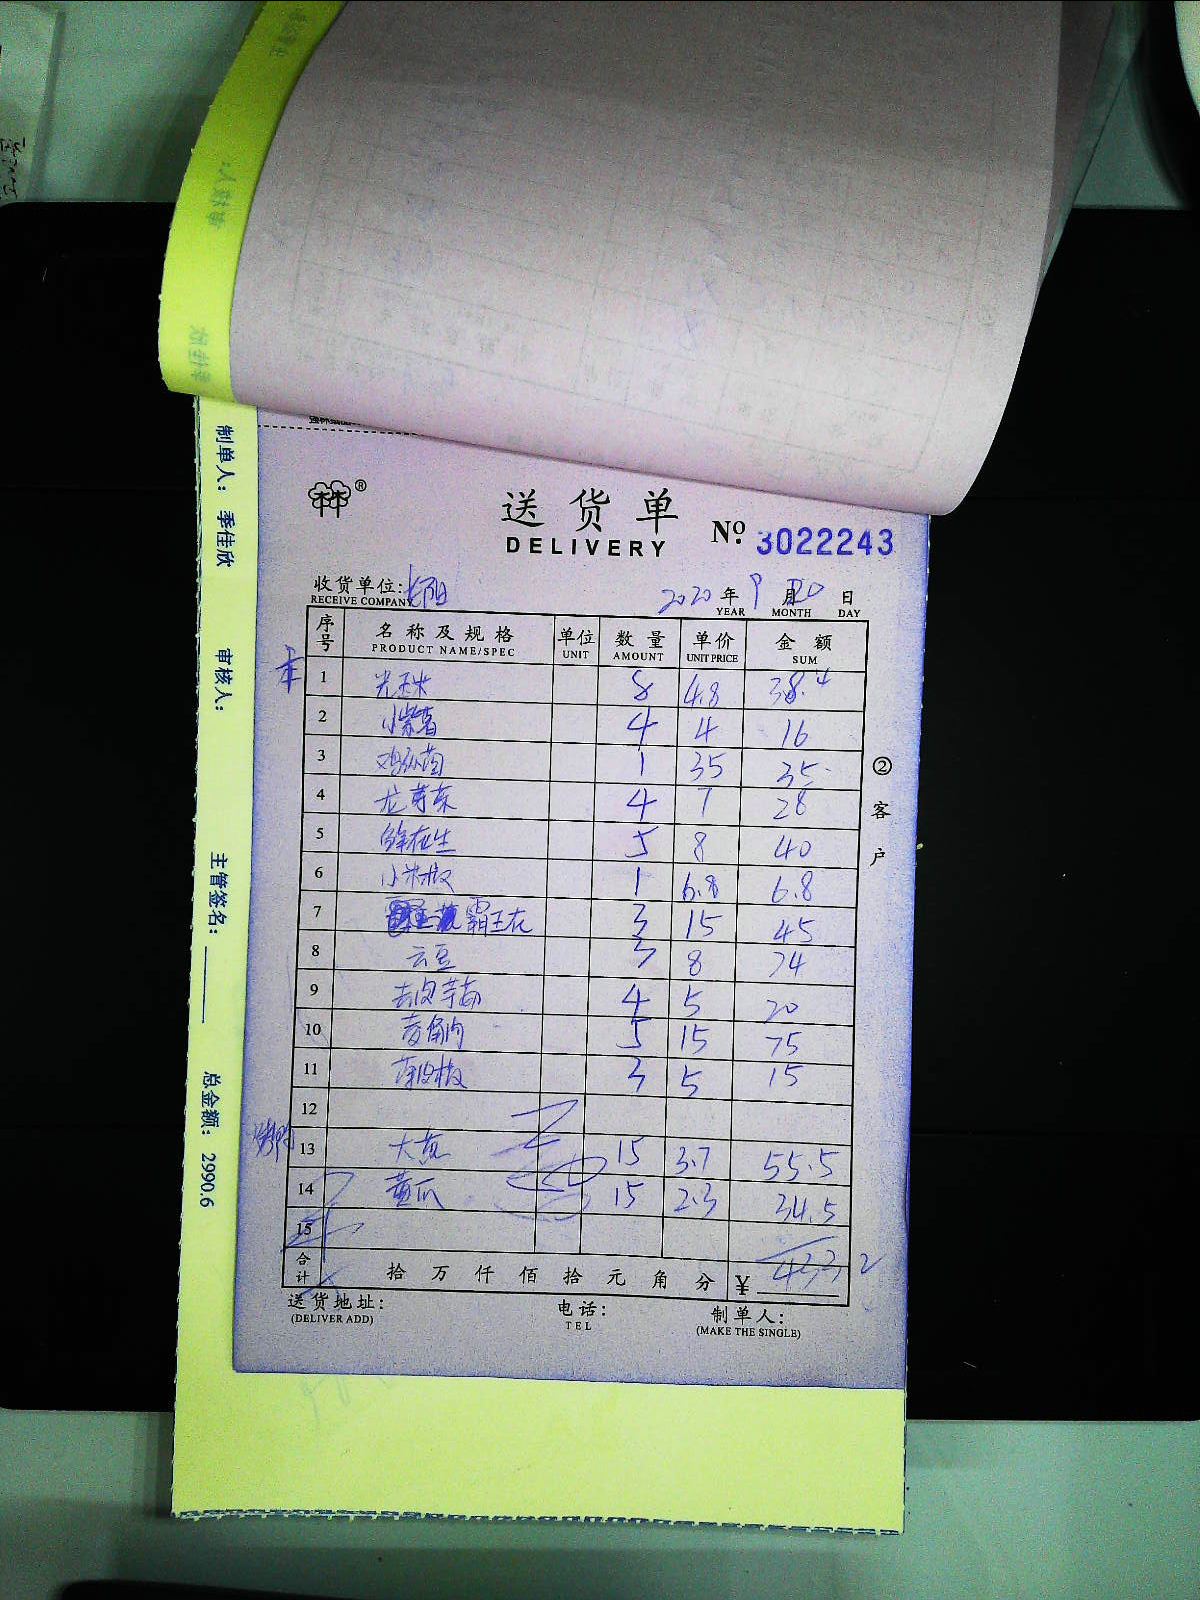 送货单
DELIVERY
No. 3022243
收货单位:
RECEIVE COMPANY
2020 年 9 月 20 日
YEAR MONTH DAY
序号 名称及规格 单位 数量 单价 金额
PRODUCT NAME/SPEC UNIT AMOUNT UNIT PRICE SUM
1 光玉米 8 4.8 38.4
2 小紫薯 4 4 16
3 鸡纵菌 1 35 35
4 龙芽菜 4 7 28
5 鲜花生 5 8 40
6 小米椒 1 6.8 6.8
7 霸王花 3 15 45
8 云豆 3 8 24
9 去皮芋艿 4 5 20
10 菱角肉 5 15 75
11 薄皮椒 3 5 15
12
13 大葱 15 3.7 55.5
14 黄瓜 15 2.3 34.5
15
合计 拾 万 仟 佰 拾 元 角 分 ¥ 433.2
送货地址: 电话: 制单人:
(DELIVER ADD) TEL (MAKE THE SINGLE)
② 客户
制单人: 季佳欣 审核人: 主管签名: 总金额: 2990.6